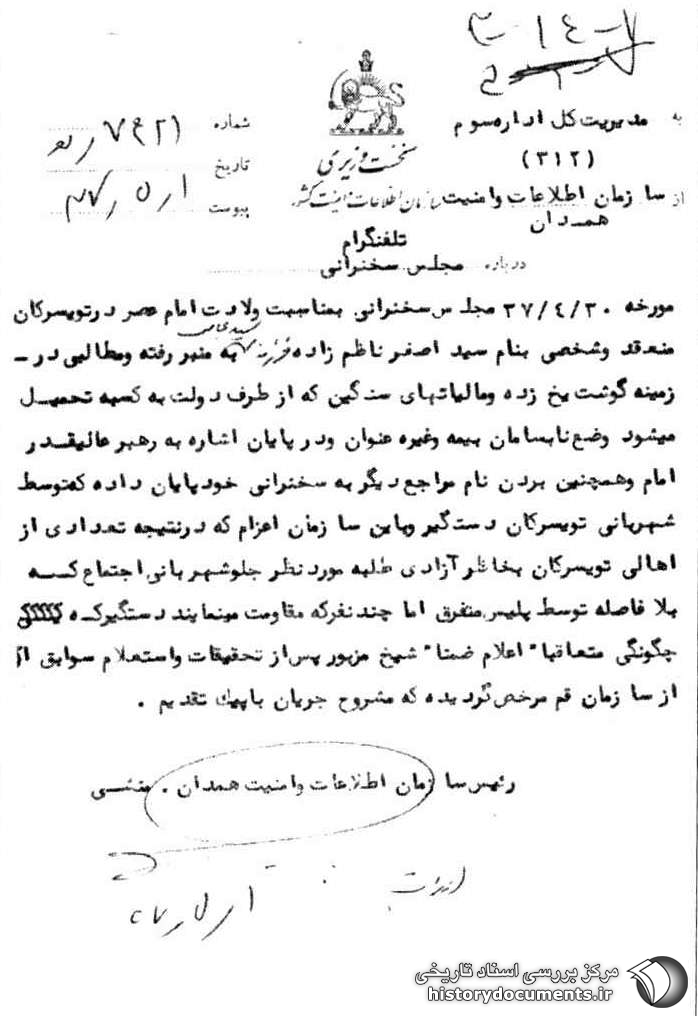 به مدیریت کل اداره سوم
(۳۱۲)
از سازمان اطلاعات وامنیت
همدان
نخست وزیری
سازمان اطلاعات و امنیت کشور
شماره
تاریخ ۱ ر ۵ ر ۳۷
پیوست
تلفنگرام
درباره مجلس سخنرانی
مورخه ۳۷/۴/۳۰ مجلس سخنرانی بمناسبت ولادت امام عصر درتویسرکان
منعقد وشخصی بنام سید اصغر ناظم زاده فرزند به منبر رفته ومطالبی در –
زمینه گوشت یخ زده ومالیاتهای سنگین که از طرف دولت به کسبه تحمیل
میشود وضع نابسامان بیمه وغیره عنوان ودر پایان اشاره به رهبر عالیقدر
امام وهمچنین بردن نام مراجع دیگر به سخنرانی خود پایان داده که توسط
شهربانی تویسرکان دستگیر وباین سازمان اعزام که درنتیجه تعدادی از
اهالی تویسرکان بخاطر آزادی طلبه مورد نظر جلو شهربانی اجتماع کسه
بلا فاصله توسط پلیس متفرق اما چند نفرکه مقاومت مینمایند دستگیرکه
چگونگی متعاقبا" اعلام ضمنا" شیخ مزبور پس از تحقیقات واستعلام سوابق
از سازمان قم مرخص گردیده که مشروح جریان باپیك تقدیم .
رئیس سازمان اطلاعات وامنیت همدان .
مرکز بررسی اسناد تاریخی
historydocuments.ir